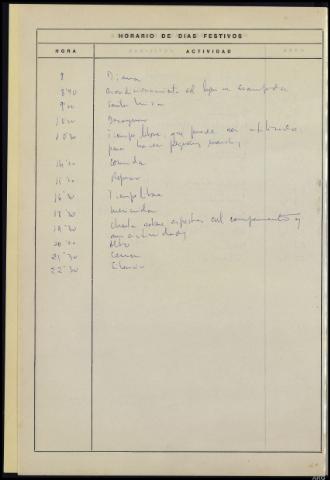 HORARIO DE DIAS FESTIVOS
HORA ACTIVIDAD
8 Diana
8'40 acondicionamiento del lugar de acampada
9'00 Santa Misa
10'00 Desayuno
10'30 Tiempo libre, que puede ser utilizado
para hacer pequeñas marchas
14'00 Comida
15'30 Reposo
16'30 Tiempo libre
17'30 Merienda
18'30 Charla sobre aspectos del campamento y
sus actividades
20'00 Alto
21'30 Cena
22'30 Silencio